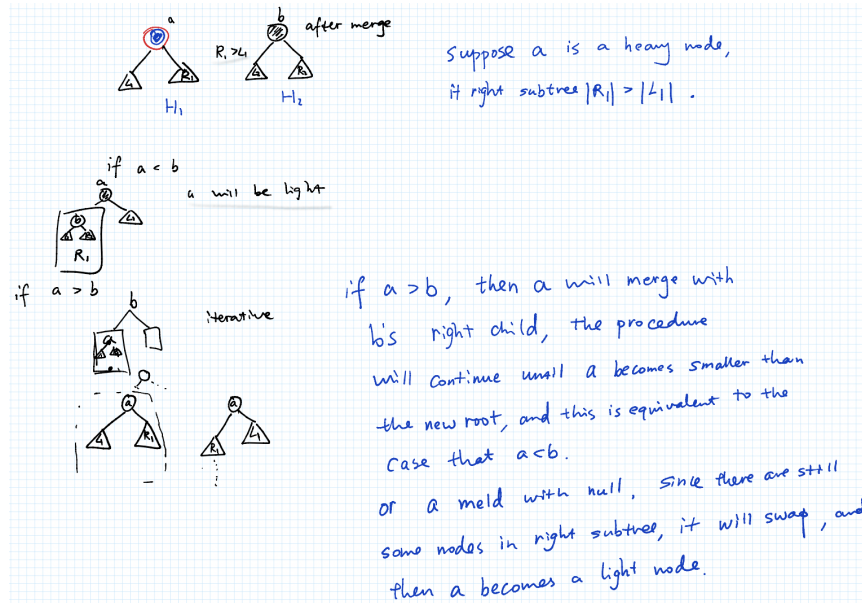 a
b
after merge
R₁ > L₁
L₁
R₁
L₁
R₂
H₁
H₂
suppose a is a heavy node,
it right subtree |R₁| > |L₁| .
if a < b
a
a will be light
b
L₁
R₁
if a > b
b
iterative
a
a
L₁
R₁
a
R₁
L₁
if a > b, then a will merge with
b's right child, the procedure
will continue until a becomes smaller than
the new root, and this is equivalent to the
case that a < b.
or a meld with null, since there are still
some nodes in right subtree, it will swap, and
then a becomes a light node.